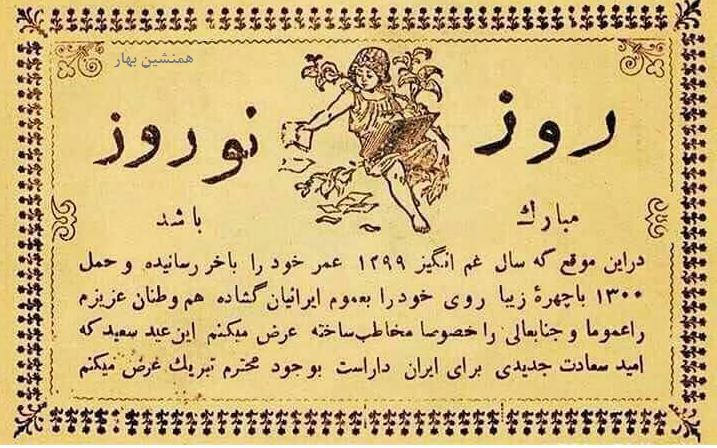 همنشین بهار
روز نوروز
مبارك باشد
دراین موقع که سال غم انگیز ۱۲۹۹ عمر خود را باخر رسانیده و حمل
۱۳۰۰ باچهرهٔ زیبا روی خودرا بعموم ایرانیان گشاده هم وطنان عزیزم
راعموما و جنابعالی را خصوصا مخاطب ساخته عرض میکنم این عید سعید که
امید سعادت جدیدی برای ایران داراست بوجود محترم تبریك عرض میکنم